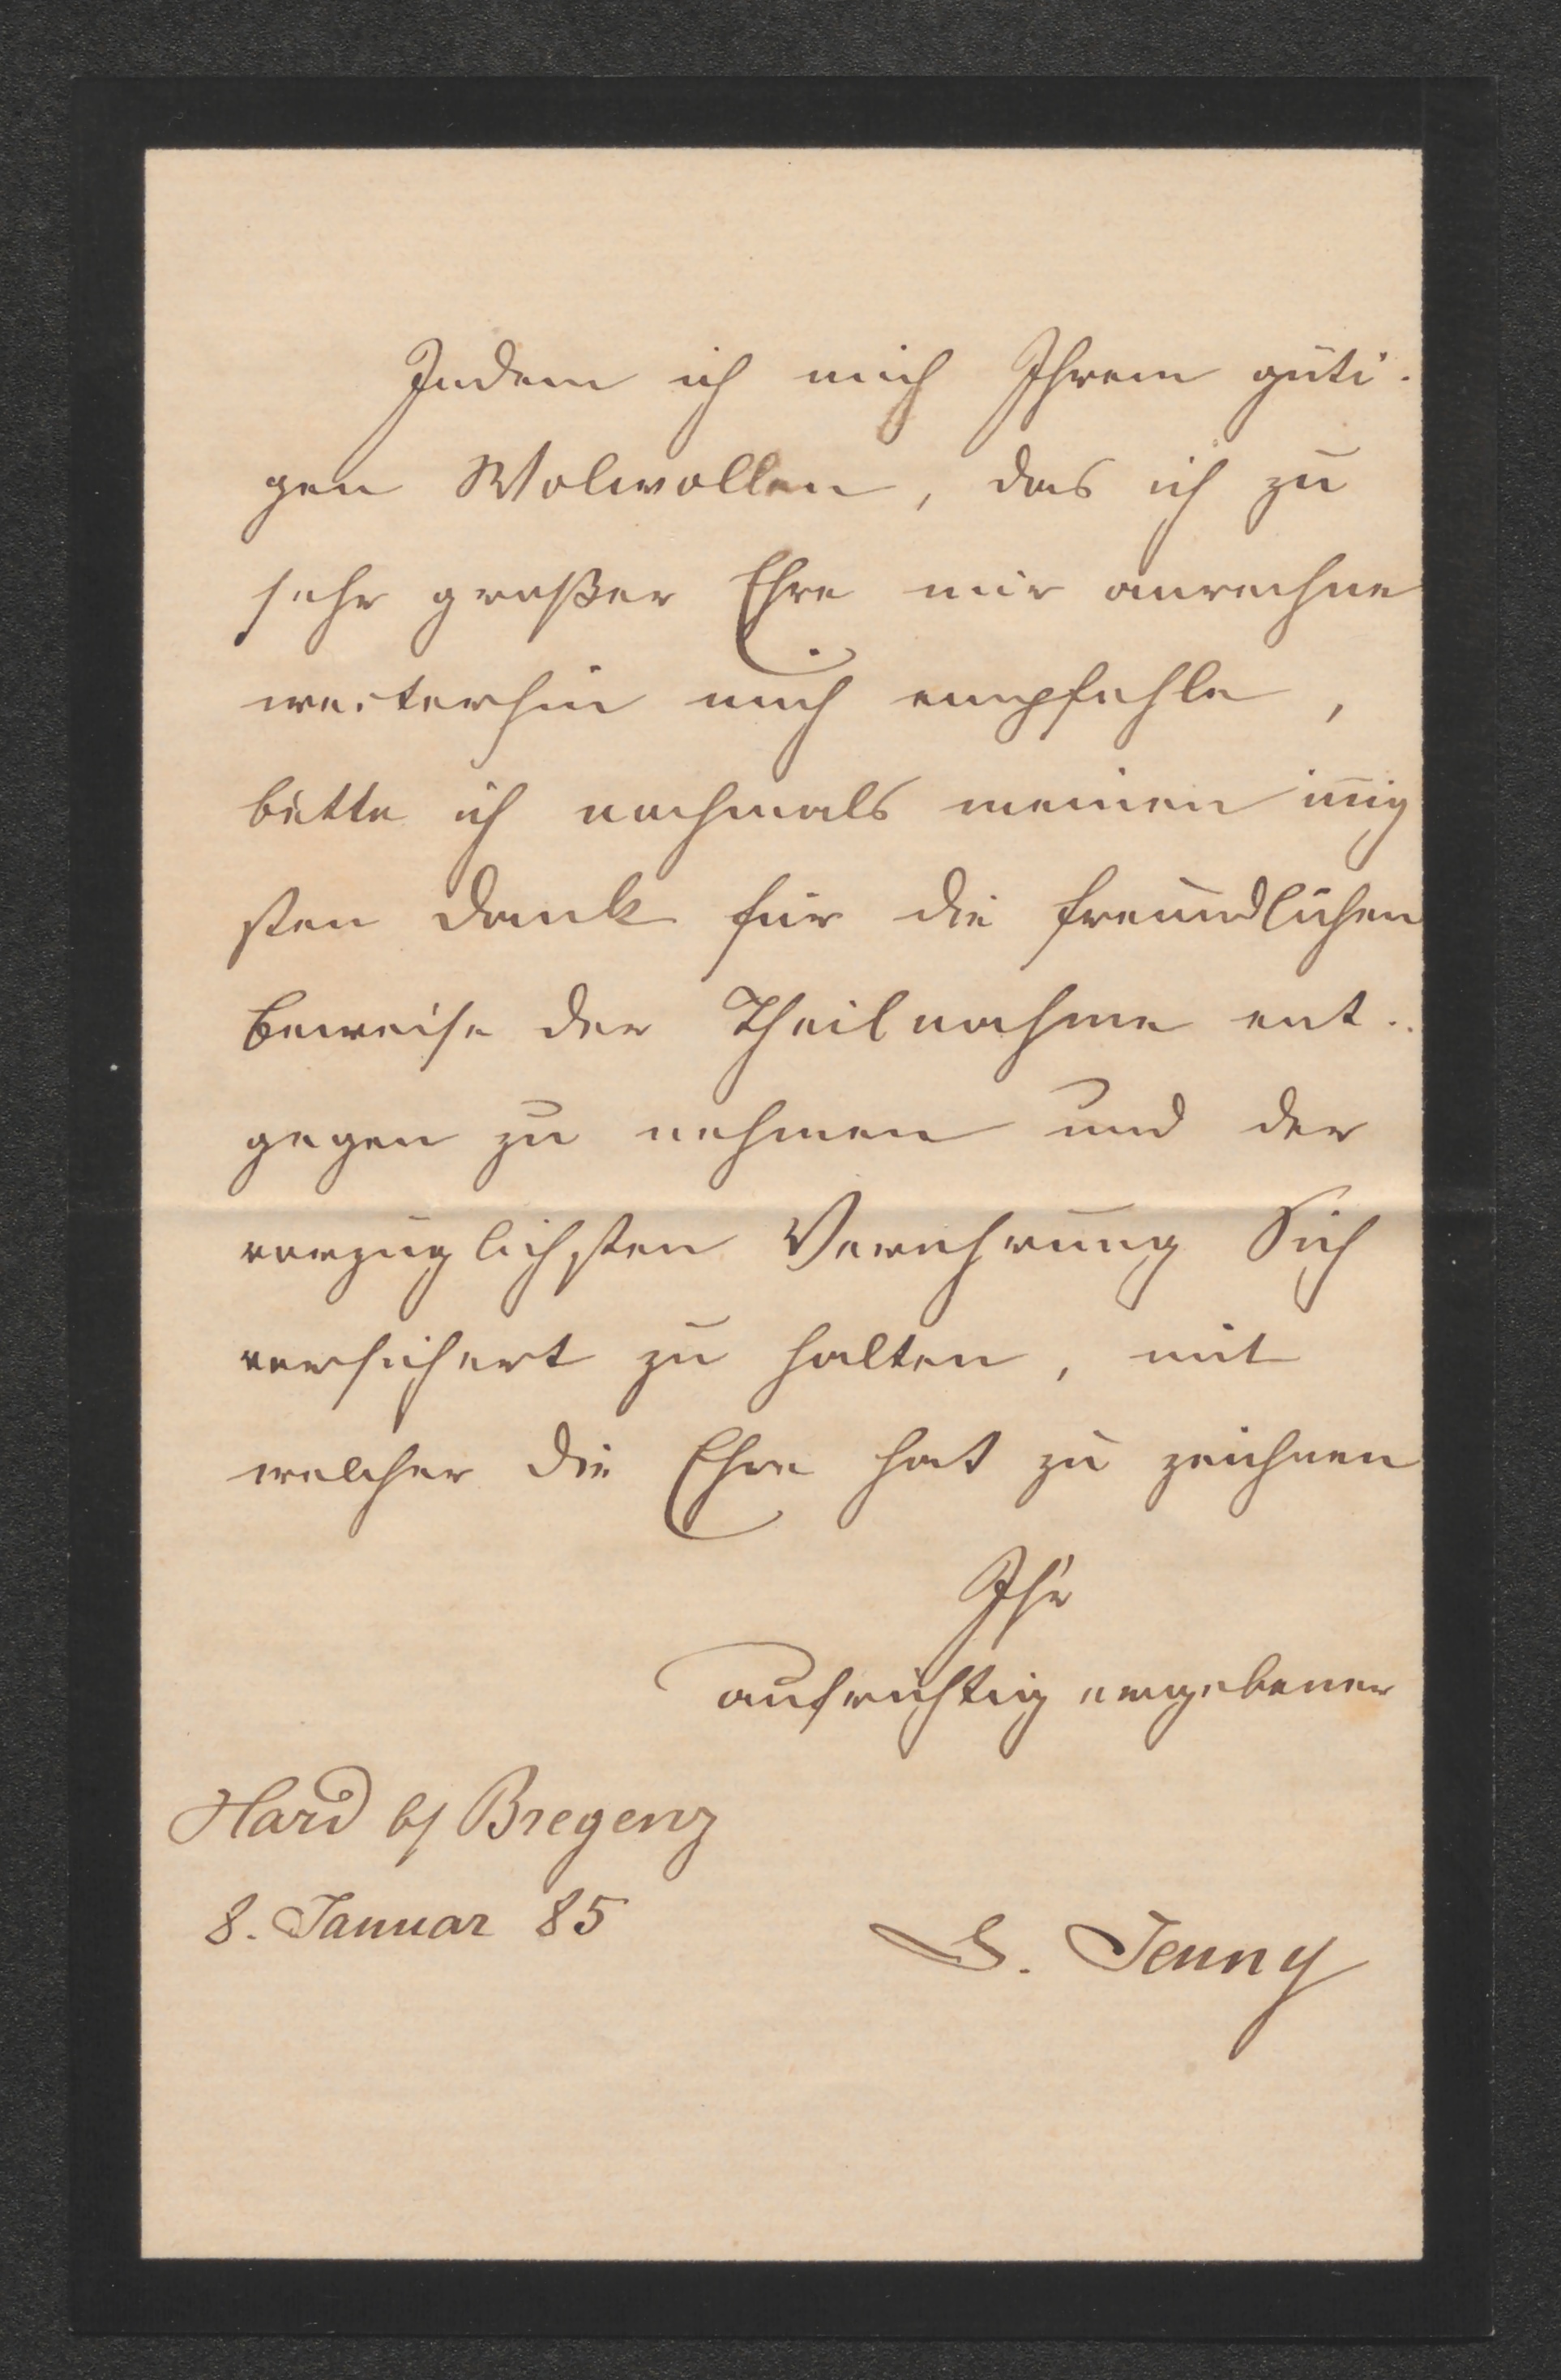 Indem ich mich Ihrem güti-
gen Wolwollen, das ich zu
sehr großer Ehre mir anrechne
weiterhin mich empfehle,
bitte ich nochmals meinen iñig
sten Dank für die freundlichen
Beweise der Theilnahme ent-
gegen zu nehmen und der
vorzüglichsten Verehrung Sich
versichert zu halten, mit
welcher die Ehre hat zu zeichnen
Ihr
aufrichtig ergebener
Hard b/ Bregenz
8. Januar 85
S. Jenny